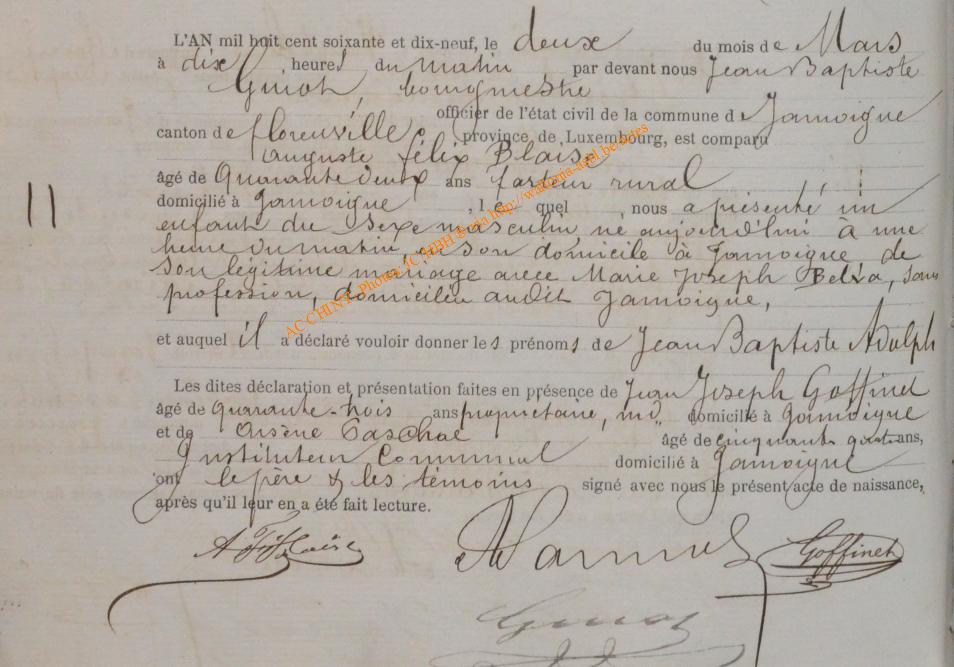 L'AN mil huit cent soixante et dix-neuf, le deux du mois de Mars
à dix heures du matin par devant nous Jean Baptiste
Guiot, bourgmestre
officier de l'état civil de la commune de Jamoigne
canton de florenville province de Luxembourg, est comparu
auguste félix Blaise
âgé de Quarante deux ans facteur rural
11
domicilié à Jamoigne, le quel, nous a présenté un
enfant du sexe masculin né aujourd'hui à une
heure du matin, en son domicile à Jamoigne, de
son légitime mariage avec Marie Joseph Belva, sans
profession, domiciliée audit Jamoigne,
et auquel il a déclaré vouloir donner les prénoms de Jean Baptiste Adolph
Les dites déclaration et présentation faites en présence de Jean Joseph Goffinet
âgé de quarante-trois ans propriétaire, domicilié à Jamoigne
et de Arsène âgé de cinquante ans,
Instituteur Communal domicilié à Jamoigne
ont le père & les témoins signé avec nous le présent acte de naissance,
après qu'il leur en a été fait lecture.
A F Blaise
Goffinet
Guiot